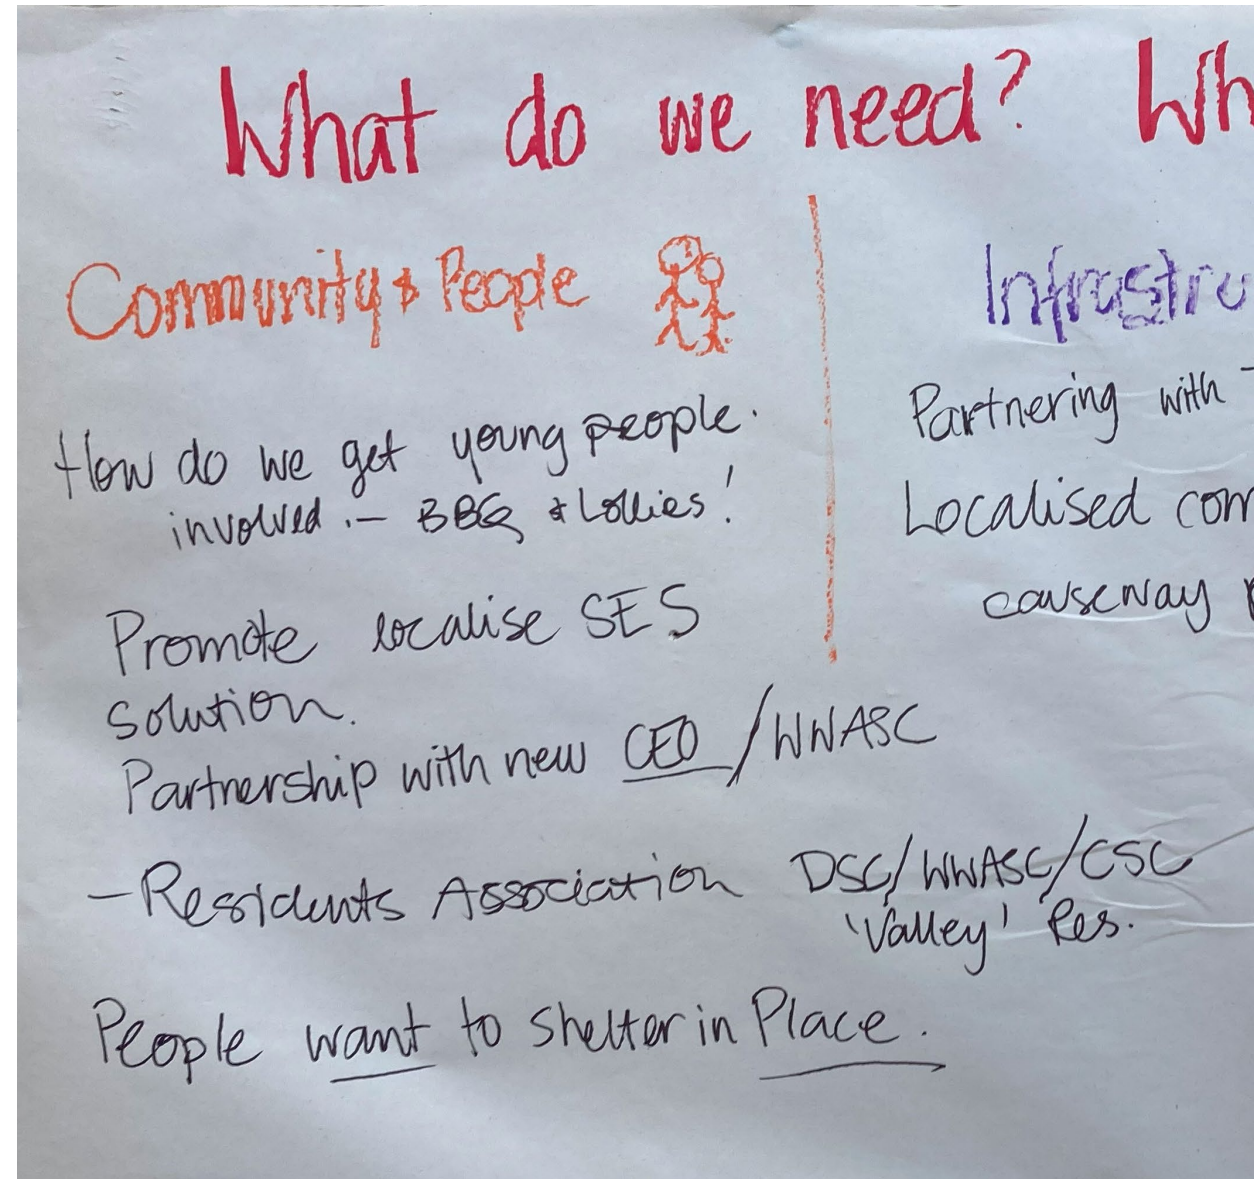 What do we need? Wh
Community & People
How do we get young people.
involved .- BBQ & Lollies!
Promote localise SES
solution.
Partnership with new CEO / WWASC
- Residents Association DSC/WWASC/CSC
'Valley' Res.
People want to shelter in Place.
Infrastru
Partnering with
Localised com
causeway